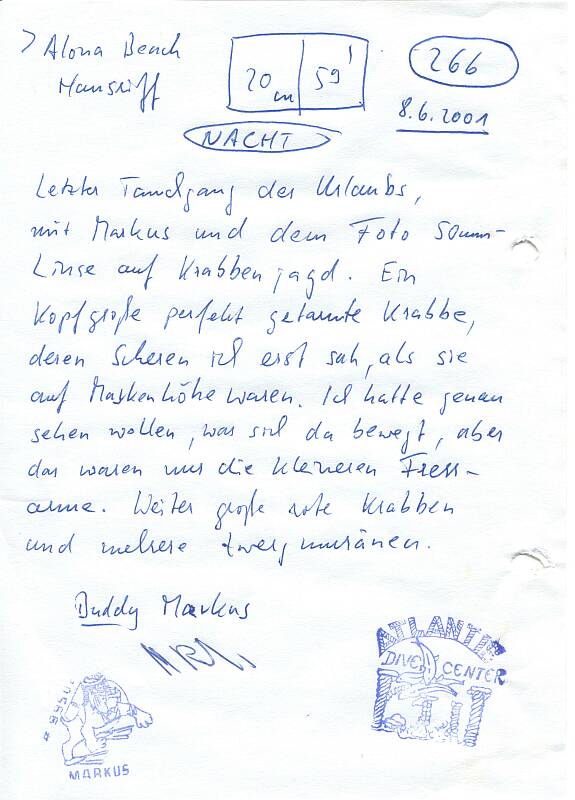 > Alona Beach
Hausriff
20 m
59'
266
8.6.2001
NACHT
Letzter Tauchgang des Urlaubs,
mit Markus und dem Foto 50mm-
Linse auf Krabbenjagd. Ein
Kopfgroße perfekt getarnte Krabbe,
deren Scheren ich erst sah, als sie
auf Maskenhöhe waren. Ich hatte genau
sehen wollen, was sich da bewegt, aber
das waren nur die kleineren Fress-
arme. Weiter große rote Krabben
und mehrere Zwergmuränen.
Buddy Markus
MARKUS
ATLANTIS
DIVE CENTER